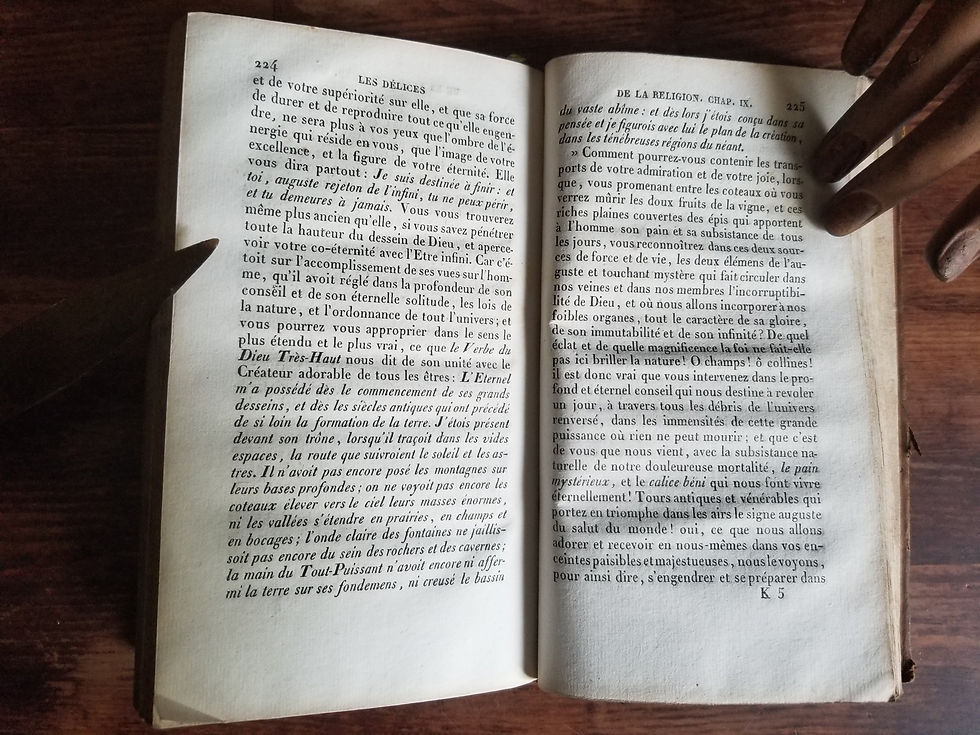 224
LES DÉLICES
et de votre supériorité sur elle, et que sa force
de durer et de reproduire tout ce qu'elle engen-
dre, ne sera plus à vos yeux que l'ombre de l'é-
nergie qui réside en vous, que l'image de votre
excellence, et la figure de votre éternité. Elle
vous dira partout : Je suis destinée à finir : et
toi, auguste rejeton de l'infini, tu ne peux périr,
et tu demeures à jamais. Vous vous trouverez
même plus ancien qu'elle, si vous savez pénétrer
toute la hauteur du dessein de Dieu, et aperce-
voir votre co-éternité avec l'Etre infini. Car c'é-
toit sur l'accomplissement de ses vues sur l'hom-
me, qu'il avoit réglé dans la profondeur de son
conseil et de son éternelle solitude, les lois de
la nature, et l'ordonnance de tout l'univers ; et
vous pourrez vous approprier dans le sens le
plus étendu et le plus vrai, ce que le Verbe du
Dieu Très-Haut nous dit de son unité avec le
Créateur adorable de tous les êtres : L'Eternel
m'a possédé dès le commencement de ses grands
desseins, et dès les siècles antiques qui ont précédé
de si loin la formation de la terre. J'étois présent
devant son trône, lorsqu'il traçoit dans les vides
espaces, la route que suivroient le soleil et les as-
tres. Il n'avoit pas encore posé les montagnes sur
leurs bases profondes ; on ne voyoit pas encore les
coteaux élever vers le ciel leurs masses énormes,
ni les vallées s'étendre en prairies, en champs et
en bocages ; l'onde claire des fontaines ne jaillis-
soit pas encore du sein des rochers et des cavernes ;
la main du Tout-Puissant n'avoit encore ni affer-
mi la terre sur ses fondemens, ni creusé le bassin
DE LA RELIGION. CHAP. IX. 225
du vaste abîme : et dès lors j'étois conçu dans sa
pensée et je figurois avec lui le plan de la création,
dans les ténébreuses régions du néant.
» Comment pourrez-vous contenir les trans-
ports de votre admiration et de votre joie, lors-
que, vous promenant entre les coteaux où vous
verrez mûrir les doux fruits de la vigne, et ces
riches plaines couvertes des épis qui apportent
à l'homme son pain et sa subsistance de tous
les jours, vous reconnoîtrez dans ces deux sour-
ces de force et de vie, les deux élémens de l'au-
guste et touchant mystère qui fait circuler dans
nos veines et dans nos membres l'incorruptibi-
lité de Dieu, et où nous allons incorporer à nos
foibles organes, tout le caractère de sa gloire,
de son immutabilité et de son infinité ? De quel
éclat et de quelle magnificence la foi ne fait-elle
pas ici briller la nature ! O champs ! ô collines !
il est donc vrai que vous intervenez dans le pro-
fond et éternel conseil qui nous destine à revoler
un jour, à travers tous les débris de l'univers
renversé, dans les immensités de cette grande
puissance où rien ne peut mourir ; et que c'est
de vous que nous vient, avec la subsistance na-
turelle de notre douleureuse mortalité, le pain
mystérieux, et le calice béni qui nous font vivre
éternellement ! Tours antiques et vénérables qui
portez en triomphe dans les airs le signe auguste
du salut du monde ! oui, ce que nous allons
adorer et recevoir en nous-mêmes dans vos en-
ceintes paisibles et majestueuses, nous le voyons,
pour ainsi dire, s'engendrer et se préparer dans
K 5